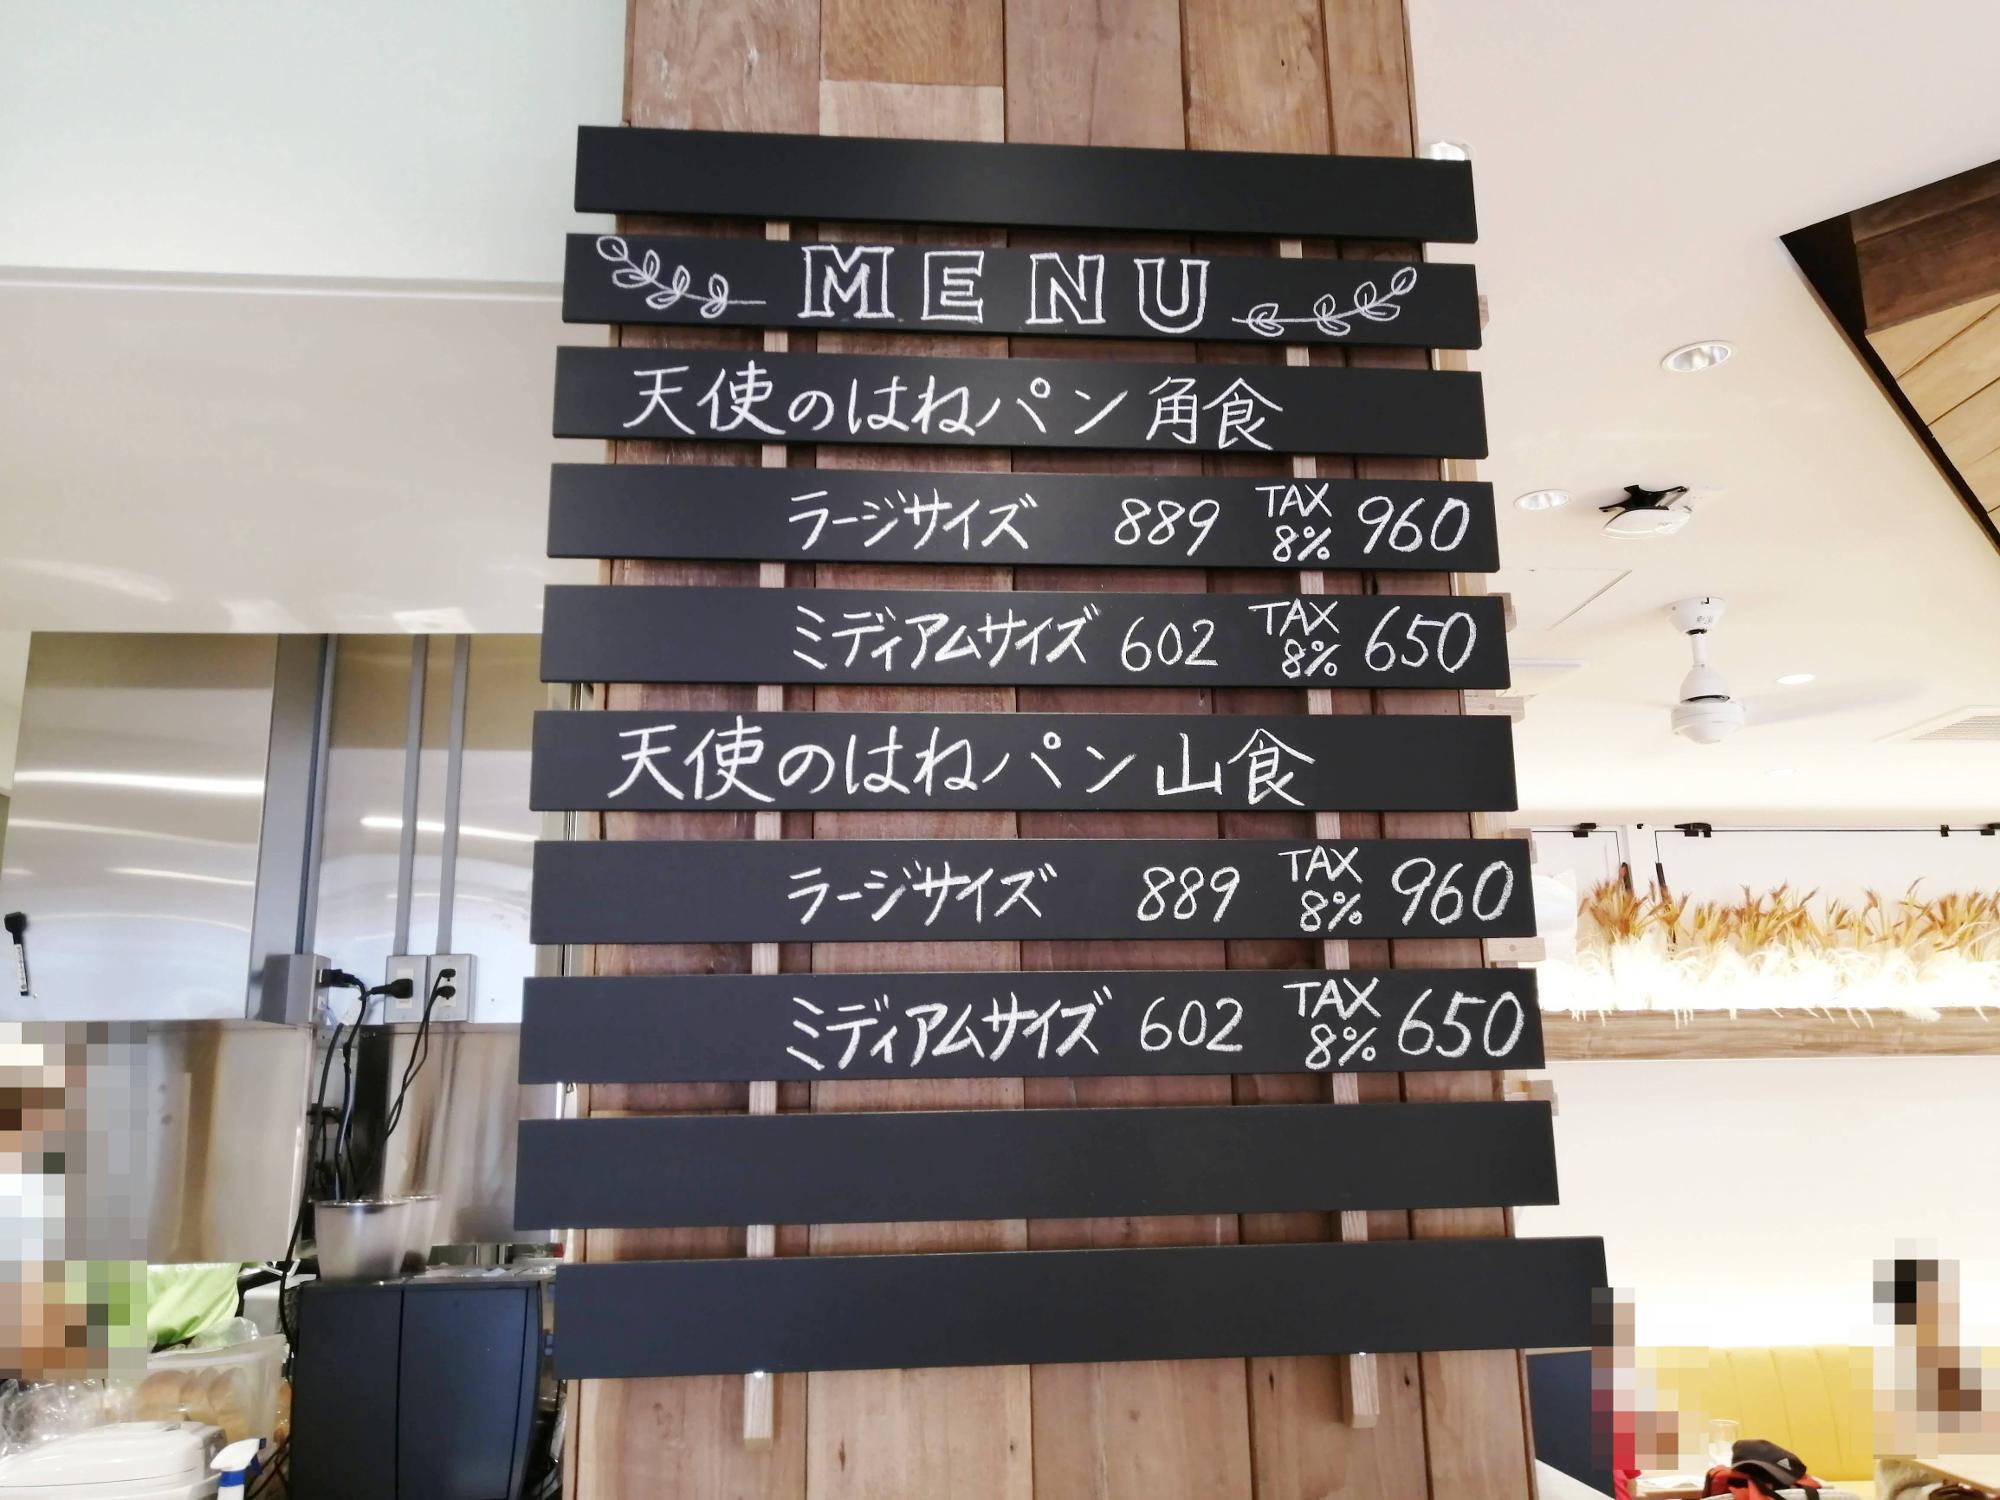 MENU
天使のはねパン 角食
ラージサイズ 889 TAX 8% 960
ミディアムサイズ 602 TAX 8% 650
天使のはねパン 山食
ラージサイズ 889 TAX 8% 960
ミディアムサイズ 602 TAX 8% 650